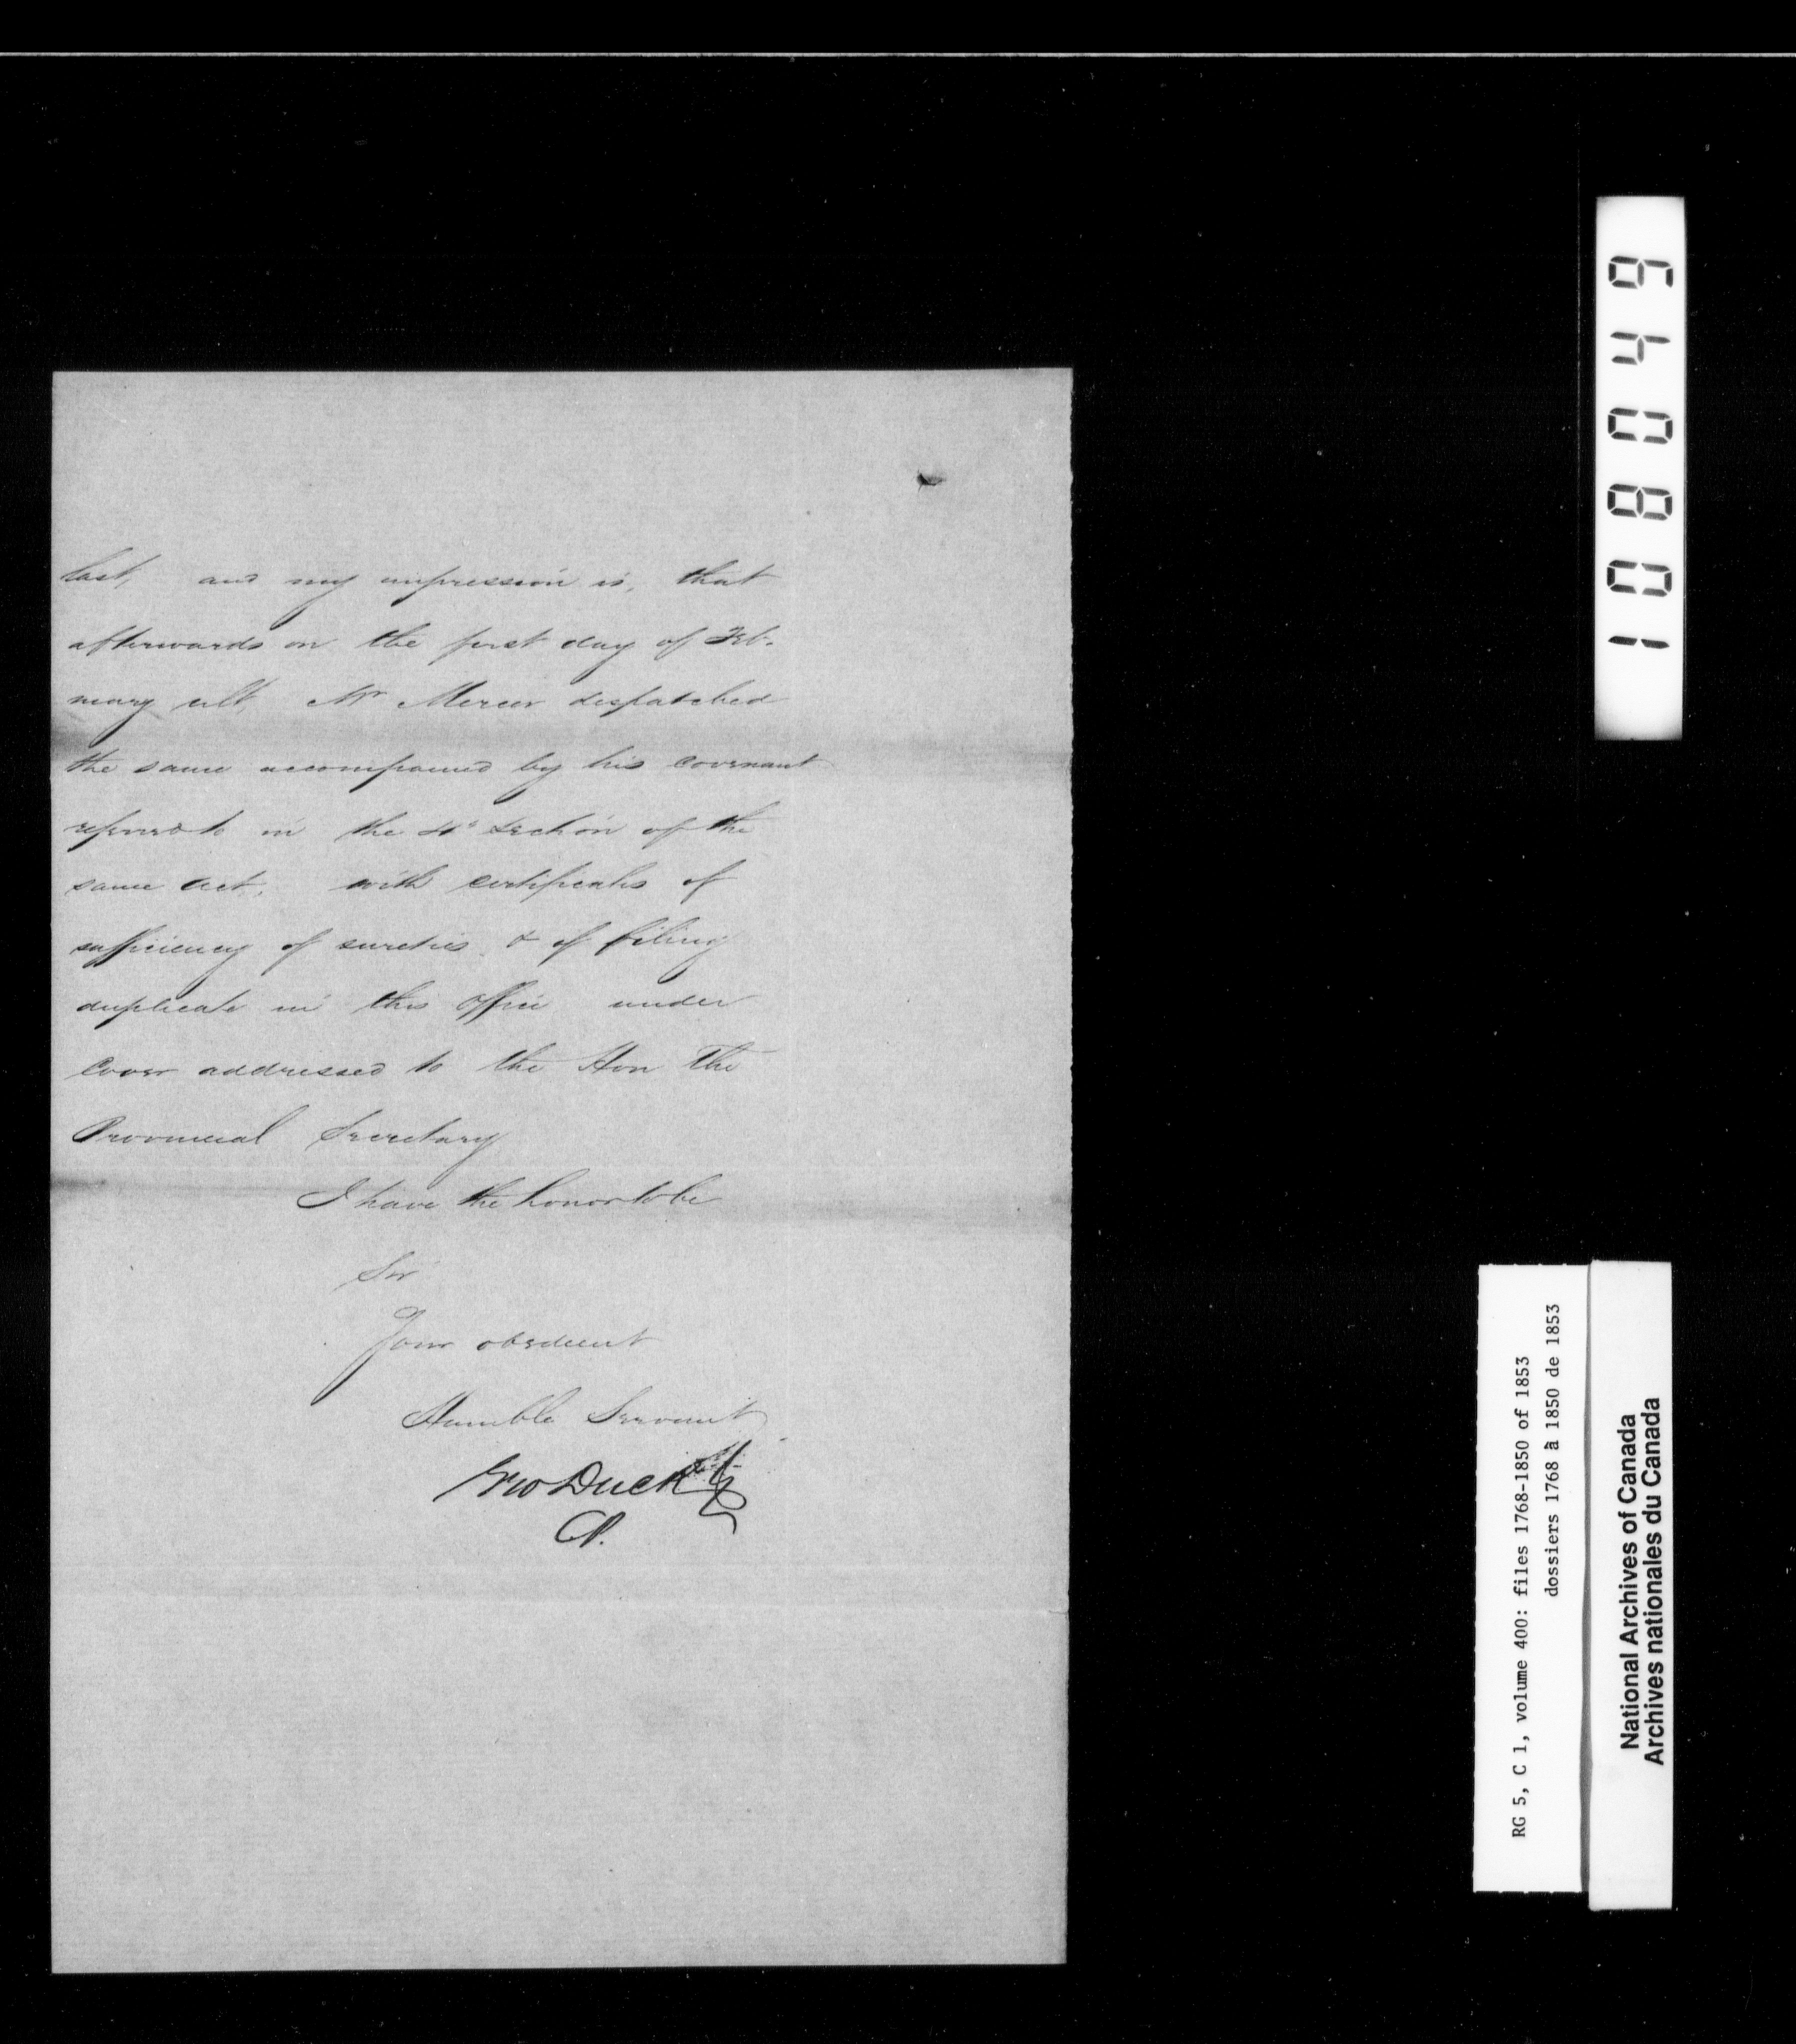 last, and my impression is, that
afterwards on the first day of Feb-
ruary ult, Mr Mercer despatched
the same accompanied by his covenant
referred to in the 4th Section of the
same Act, with certificates of
sufficiency of sureties & of filing
duplicate in this Office under
cover addressed to the Hon The
Provincial Secretary
I have the honor to be
Sir
Your obedient
Humble Servant
Geo Duck
CP.
108049
RG 5, C 1, volume 400: files 1768-1850 of 1853
dossiers 1768 à 1850 de 1853
National Archives of Canada
Archives nationales du Canada